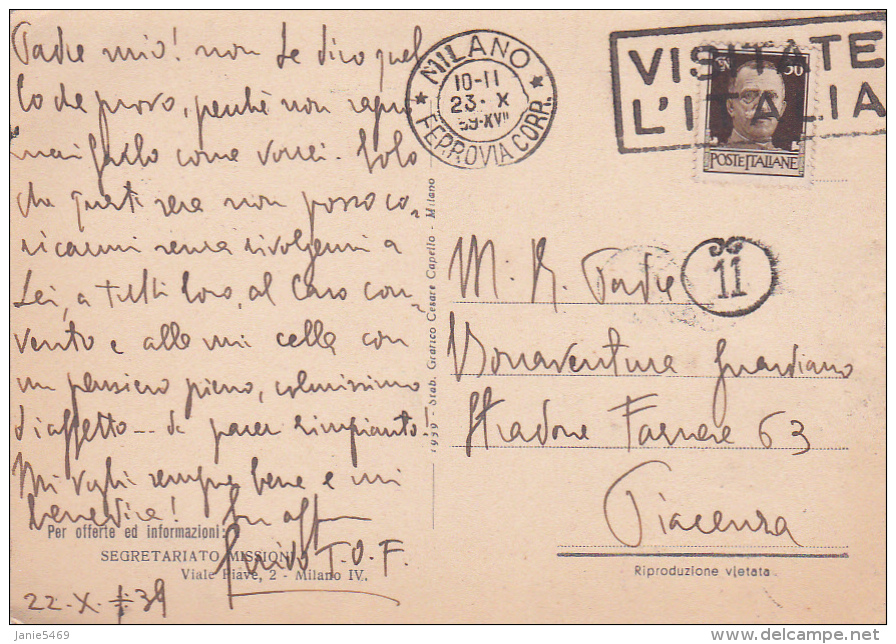 Padre mio! non Le dico quel
lo che provo, perché non saprei
farlo come vorrei. Solo
che questa sera non posso co,
ricarmi senza rivolgermi a
Lei, a tutti loro, al Caro con,
vento e alla mia cella con
un pensiero pieno, colmissimo
d'affetto -- da parer rimpianto!
Mi voglia sempre bene e mi
benedica! Suo aff
Guido T.O.F.
Per offerte ed informazioni:
SEGRETARIATO MISSIONI
Viale Piave, 2 - Milano IV.
22.X.39
1939 - Stab. Grafico Cesare Capello - Milano
MILANO
10-11
23.X
39-XVII
FERROVIA CORR.
VISITATE
L'ITALIA
30
POSTE ITALIANE
11
M. R. Padre
Bonaventura Guardiano
Stradone Farnese 63
Piacenza
Riproduzione vietata
Janie5469
www.delcampe.net